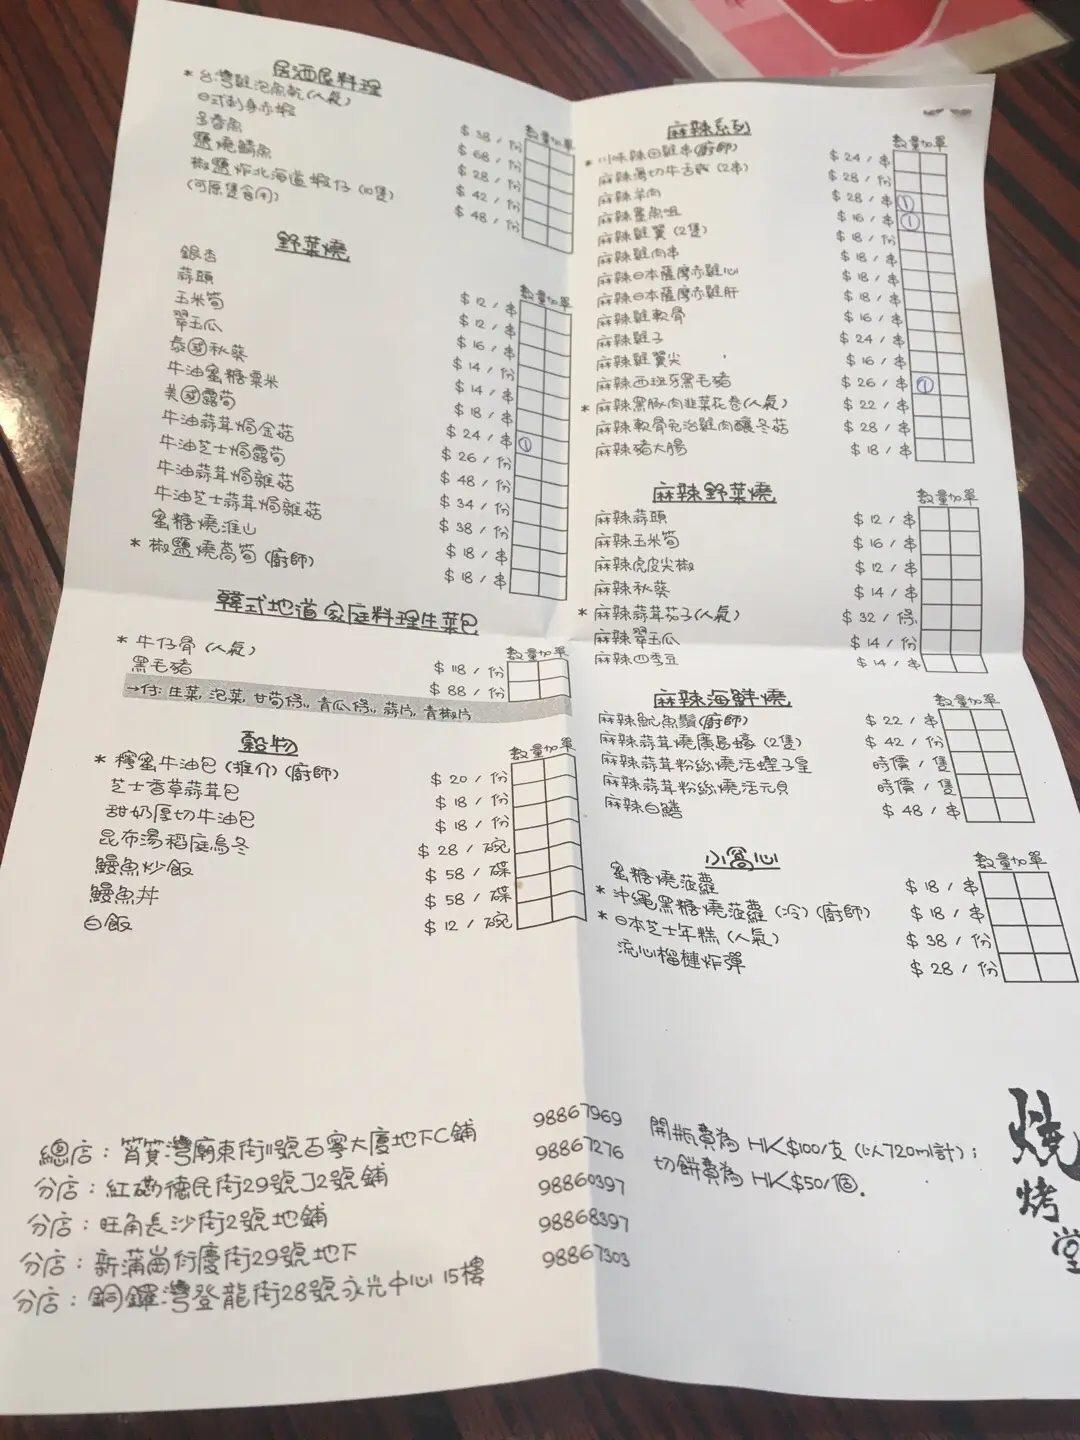 居酒屋料理
數量 加單
* 台灣雞泡魚乾(人氣) $38/份
日式刺身赤蝦 $68/份
多春魚 $28/份
鹽燒鯖魚 $42/份
椒鹽炸北海道蝦仔 (10隻) $48/份
(可原隻食用)
野菜燒
數量 加單
銀杏 $12/串
蒜頭 $12/串
玉米筍 $16/串
翠玉瓜 $14/份
泰國秋葵 $14/串
牛油蜜糖粟米 $18/串
美國露筍 $24/串 ①
牛油蒜茸焗金菇 $26/份
牛油芝士焗露筍 $48/份
牛油蒜茸焗雜菇 $34/份
牛油芝士蒜茸焗雜菇 $38/份
蜜糖燒淮山 $18/串
* 椒鹽燒萵筍 (廚師) $18/串
韓式地道家庭料理生菜包
數量 加單
* 牛仔骨 (人氣) $118/份
黑毛豬 $88/份
→付: 生菜, 泡菜, 甘筍條, 青瓜條, 蒜片, 青椒片
穀物
數量 加單
* 檸蜜牛油包 (推介) (廚師) $20/份
芝士香草蒜茸包 $18/份
甜奶厚切牛油包 $18/份
昆布湯稻庭烏冬 $28/碗
鰻魚炒飯 $58/碟
鰻魚丼 $58/碟
白飯 $12/碗
麻辣系列
數量 加單
* 川味辣田雞串(廚師) $24/串
麻辣薄切牛舌 (2串) $28/份
麻辣羊肉 $28/串 ①
麻辣墨魚咀 $16/串 ①
麻辣雞翼 (2隻) $18/份
麻辣雞肉串 $18/串
麻辣日本薩摩赤雞心 $18/串
麻辣日本薩摩赤雞肝 $18/串
麻辣雞軟骨 $16/串
麻辣雞子 $24/串
麻辣雞翼尖 $16/串
麻辣西班牙黑毛豬 $26/串 ①
* 麻辣黑豚肉韭菜花卷(人氣) $22/串
麻辣軟骨免治雞肉釀冬菇 $28/串
麻辣豬大腸 $18/串
麻辣野菜燒
數量 加單
麻辣蒜頭 $12/串
麻辣玉米筍 $16/串
麻辣虎皮尖椒 $12/串
麻辣秋葵 $14/串
* 麻辣蒜茸茄子(人氣) $32/條
麻辣翠玉瓜 $14/份
麻辣四季豆 $14/串
麻辣海鮮燒
數量 加單
麻辣魷魚鬚(廚師) $22/串
麻辣蒜茸燒廣島蠔 (2隻) $42/份
麻辣蒜茸粉絲燒活蟶子皇 時價/隻
麻辣蒜茸粉絲燒活元貝 時價/隻
麻辣白鱔 $48/串
小窩心
數量 加單
蜜糖燒菠蘿 $18/串
* 沖繩黑糖燒菠蘿 (冷) (廚師) $18/串
* 日本芝士年糕 (人氣) $38/份
流心榴槤炸彈 $28/份
總店 : 筲箕灣廟東街11號百寧大廈地下C鋪 98867969
分店 : 紅磡德民街29號J2號鋪 98867276
分店 : 旺角長沙街2號地鋪 98860397
分店 : 新蒲崗衍慶街29號地下 98868397
分店 : 銅鑼灣登龍街28號永光中心15樓 98867303
開瓶費為 HK$100/支 (以720ml計) ;
切餅費為 HK$50/個.
燒
烤
堂